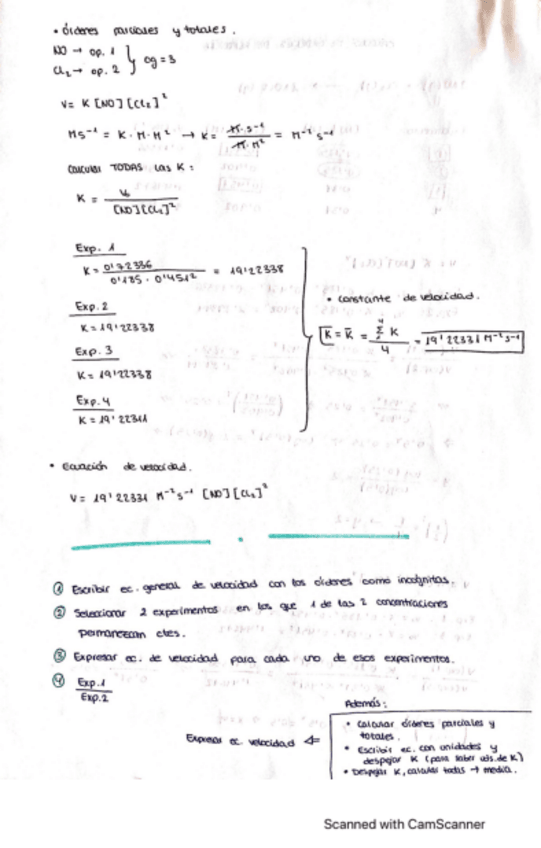 • Órdenes parciales y totales.
NO → op. 1
Cl₂ → op. 2 } og = 3
V = K [NO] [Cl₂]²
Ms⁻¹ = K · M · M² → K = M·s⁻¹ / M·M² = M⁻²s⁻¹
CALCULAR TODAS las K:
K = V₀ / [NO][Cl₂]²
Exp. 1
K = 0'72336 / 0'185 · 0'451² = 19'22338
Exp. 2
K = 19'22338
Exp. 3
K = 19'22338
Exp. 4
• constante de velocidad.
K = K̄ = Σ K / 4 = 19'22331 M⁻²s⁻¹
• Ecuación de velocidad.
V = 19'22331 M⁻²s⁻¹ [NO][Cl₂]²
① Escribir ec. general de velocidad con los órdenes como incógnitas.
② Seleccionar 2 experimentos en los que 1 de las 2 concentraciones
permanezcan ctes.
③ Expresar ec. de velocidad para cada uno de esos experimentos.
④ Exp. 1 / Exp. 2
Además:
• Calcular órdenes parciales y
totales.
• Escribir ec. con unidades y
despejar K (para saber uds. de K)
• Despejar K, calcular todas → media.
Expresar ec. velocidad ⇐
Scanned with CamScanner